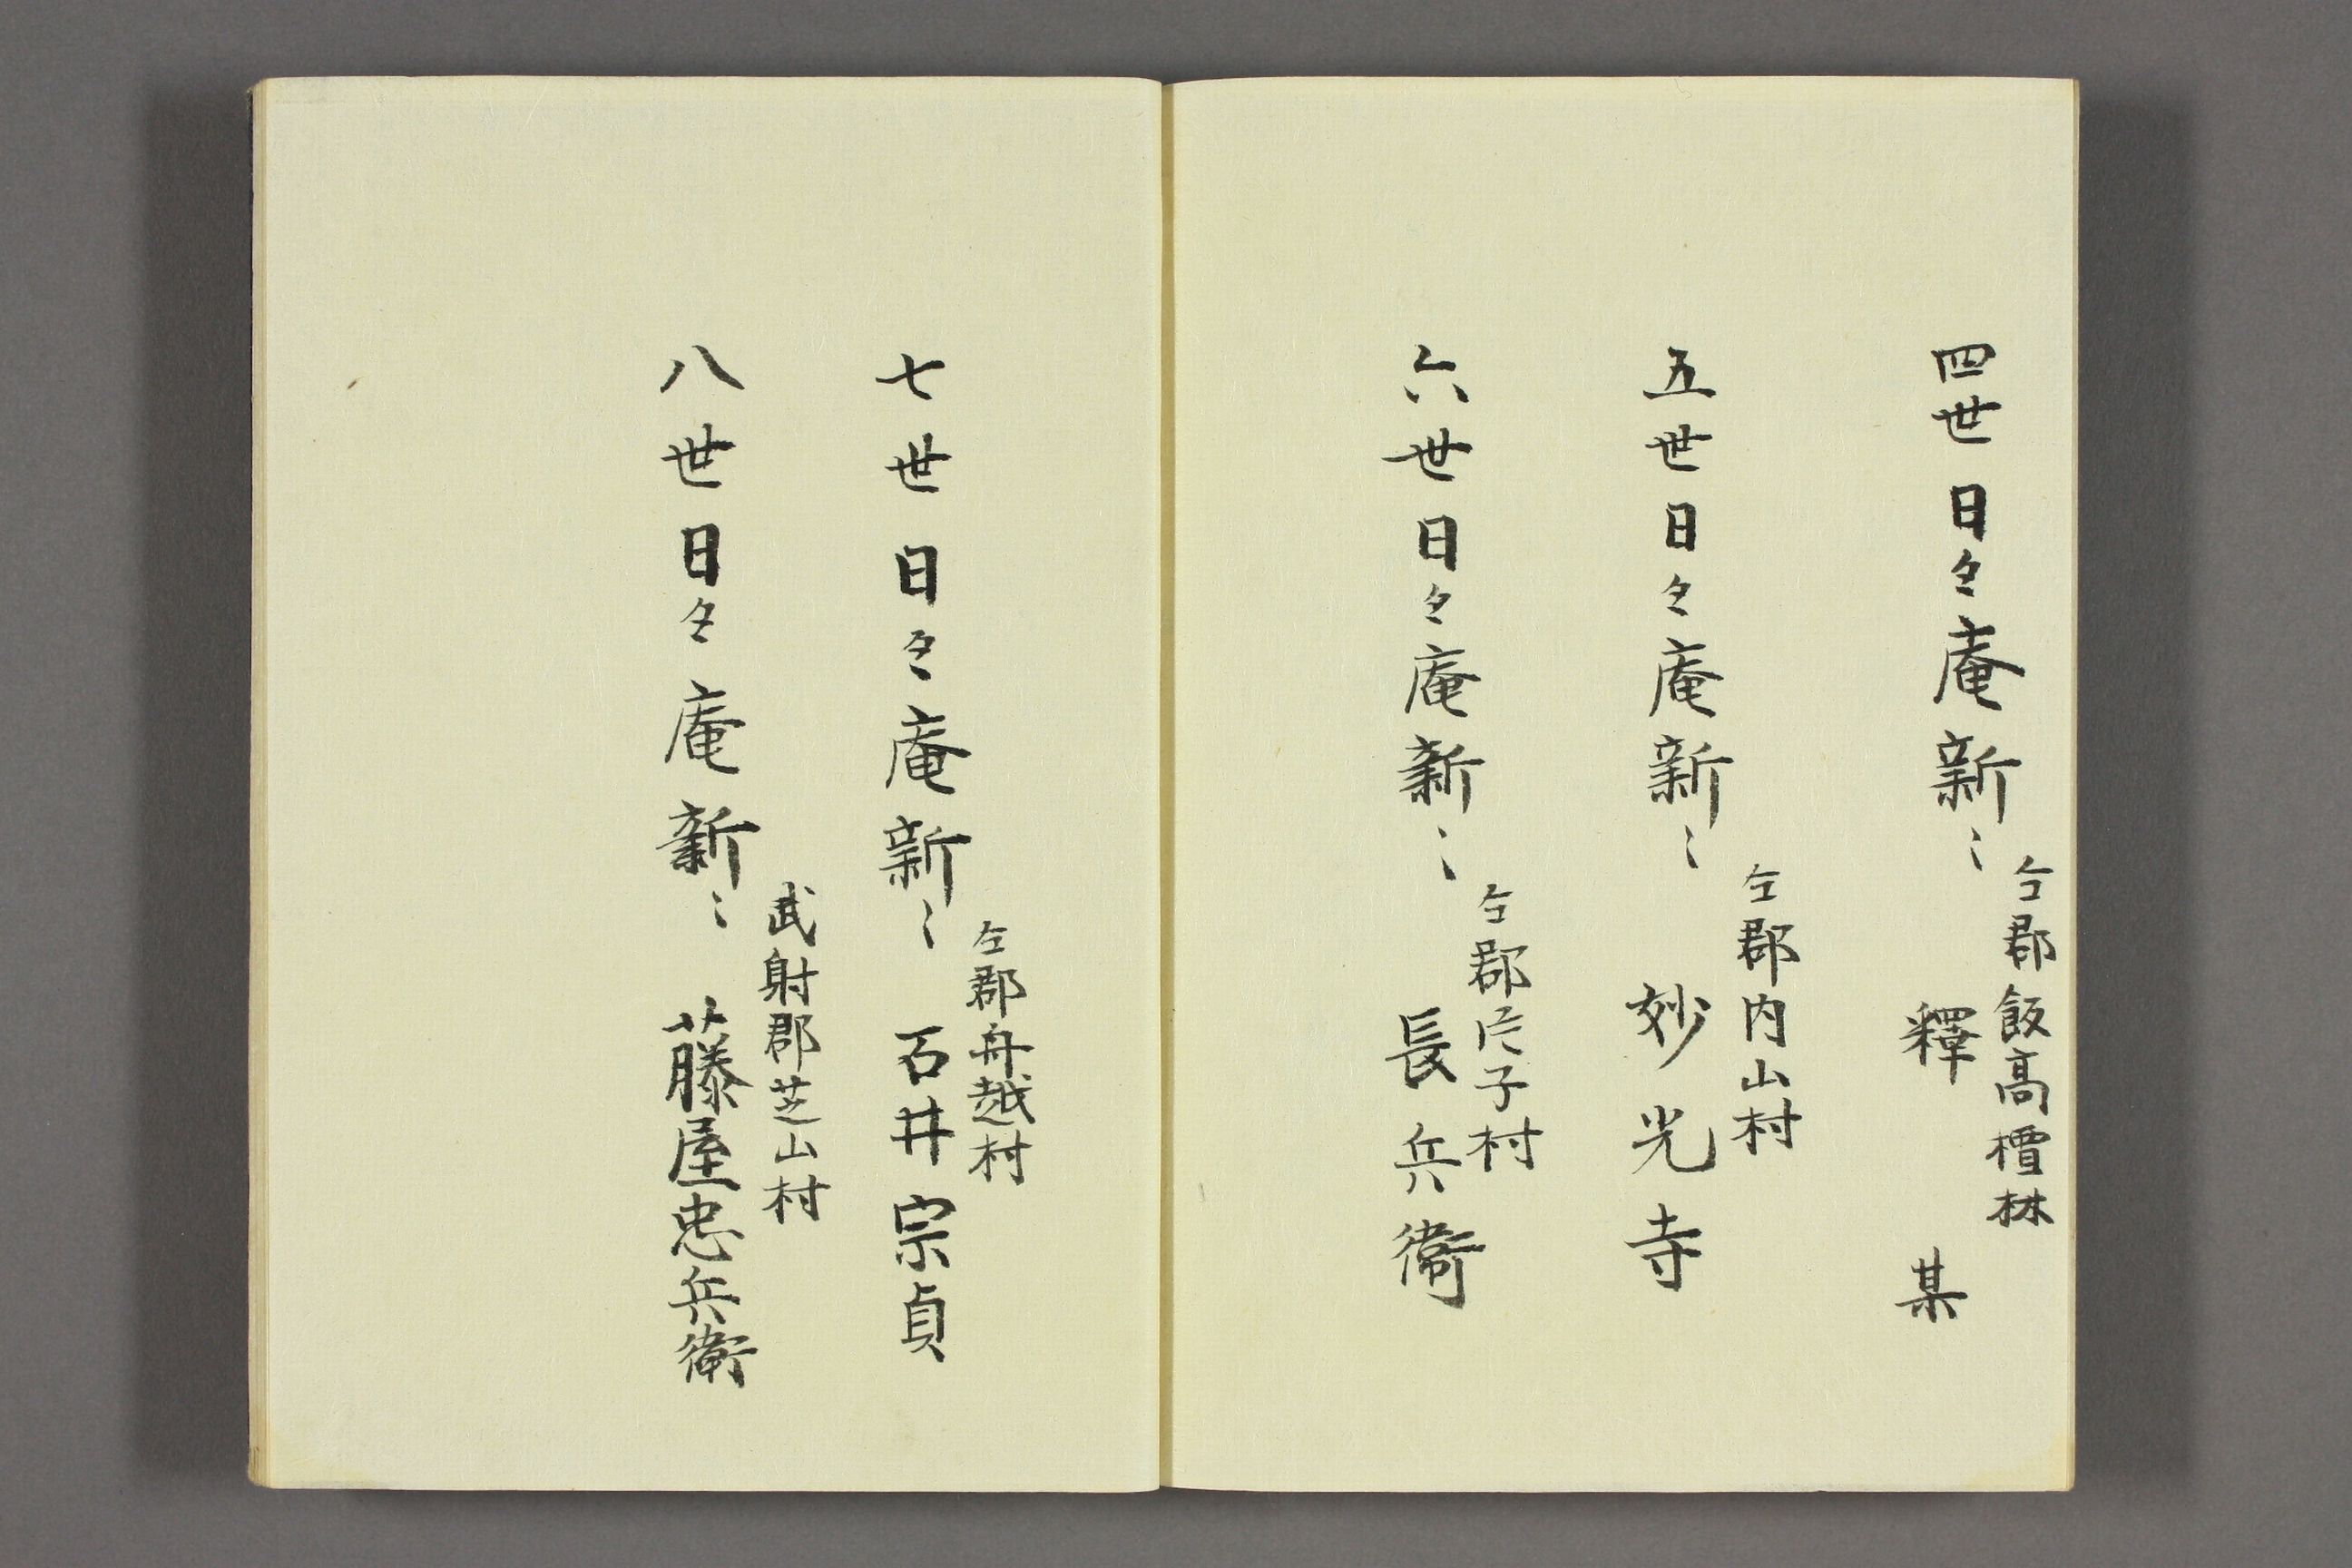 仝郡飯高檀林
四世日々庵新〻 釋 某
仝郡内山村
五世日々庵新〻 妙光寺
仝郡片子村
六世日々庵新〻 長兵衛
仝郡舟越村
七世日々庵新〻 石井宗貞
武射郡芝山村
八世日々庵新〻 藤屋忠兵衛